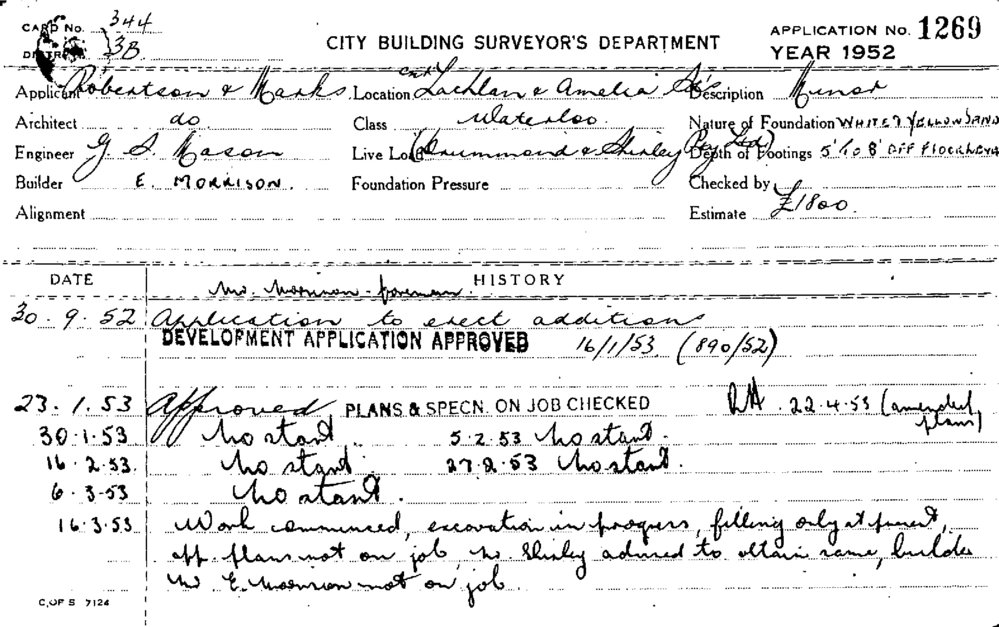 CARD No. 344
DISTRICT 3B
CITY BUILDING SURVEYOR'S DEPARTMENT
APPLICATION No. 1269
YEAR 1952
Applicant Robertson & Marks Location cnr Lachlan & Amelia St's Description Minor
Architect do Class Waterloo Nature of Foundation WHITE & YELLOW SAND
Engineer G S Mason Live Load (Drummond & Shirley Pty Ltd) Depth of Footings 5' TO 8' OFF
Builder E. MORRISON. Foundation Pressure Checked by
Alignment Estimate £1800.
DATE HISTORY
Mr. Morrison - foreman.
30. 9. 52 Application to erect additions
DEVELOPMENT APPLICATION APPROVED 16/1/53 (890/52)
23. 1. 53 Approved PLANS & SPECN. ON JOB CHECKED RH. 22.4.53 (amended plans)
30.1.53 No start. 5.2.53 No start.
16.2.53. No start. 27.2.53 No start.
6.3-53 No start.
16.3.53 Work commenced, excavation in progress, filling only at present,
app. plans not on job, Mr. Shirley advised to obtain same, builder
Mr E. Morrison not on job.
C. OF S 7124